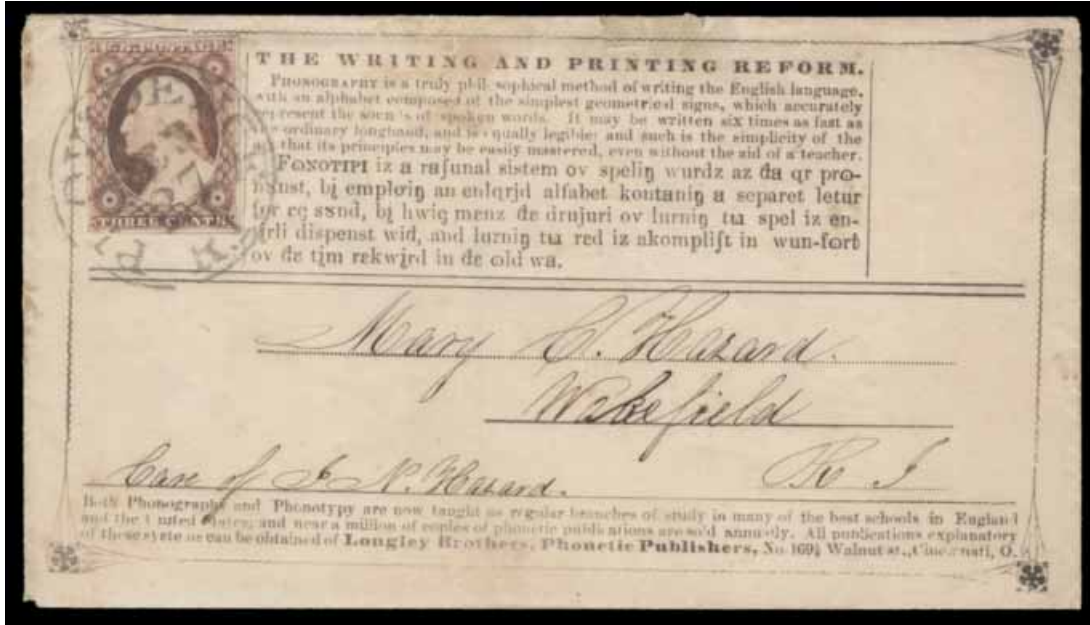 U.S. POSTAGE
THREE CENTS
THE WRITING AND PRINTING REFORM.
PHONOGRAPHY is a truly philosophical method of writing the English language,
with an alphabet composed of the simplest geometrical signs, which accurately
represent the sounds of spoken words. It may be written six times as fast as
the ordinary longhand, and is equally legible; and such is the simplicity of the
art that its principles may be easily mastered, even without the aid of a teacher.
FONOTIPI iz a raʃunal sistem ov speliŋ wurdz az đa qr pro-
nɤnst, bį emploiŋ an enlqrjd alfabet kontaniŋ a separet letur
for eç sɤnd, bį hwiç menz đe drujuri ov lurniŋ tu spel iz en-
tįrli dispenst wiđ, and lurniŋ tu red iz akompliʃt in wun-fort
ov đe tįm rekwįrd in đe old wa.
Mary C. Hazard.
Wakefield
Care of J. N. Hazard.
R I
Both Phonography and Phonotypy are now taught as regular branches of study in many of the best schools in England
and the United States; and near a million of copies of phonetic publications are sold annually. All publications explanatory
of these systems can be obtained of Longley Brothers, Phonetic Publishers, No. 169½ Walnut st., Cincinnati, O.